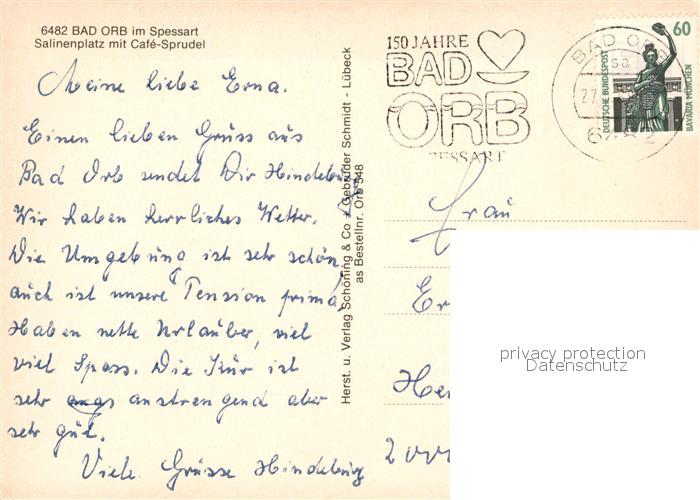 6482 BAD ORB im Spessart
Salinenplatz mit Café-Sprudel
Meine liebe Erna.
Einen lieben Grüss aus
Bad Orb sendet Dir Hindeburg
Wir haben herrliches Wetter.
Die Umgebüng ist sehr schön,
auch ist unsere Pension prima,
Haben nette Urlaüber, viel
viel Spass. Die Kür ist
sehr anstrengend aber
sehr güt.
Viele Grüsse Hindebürg
Herst. u. Verlag Schöning & Co + Gebrüder Schmidt - Lübeck
as Bestellnr. Orb 548
150 JAHRE
BAD
ORB
SPESSART
BAD ORB
sa
27.
6482
60
DEUTSCHE BUNDESPOST
BAVARIA MÜNCHEN
Fraü
Er
Her
2000
privacy protection
Datenschutz